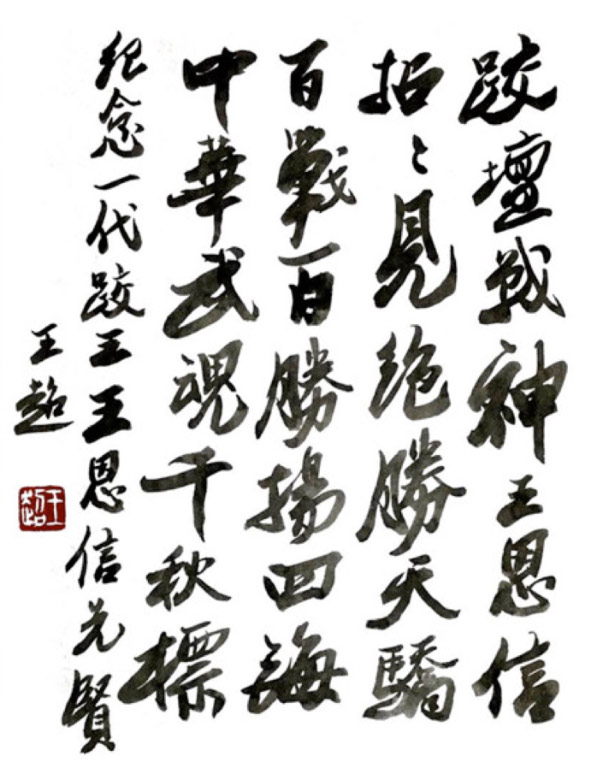 跤壇战神王恩信
招々見絶勝天驕
百戰百勝揚四海
中華武魂千秋標
纪念一代跤王王恩信先賢
王超
王超